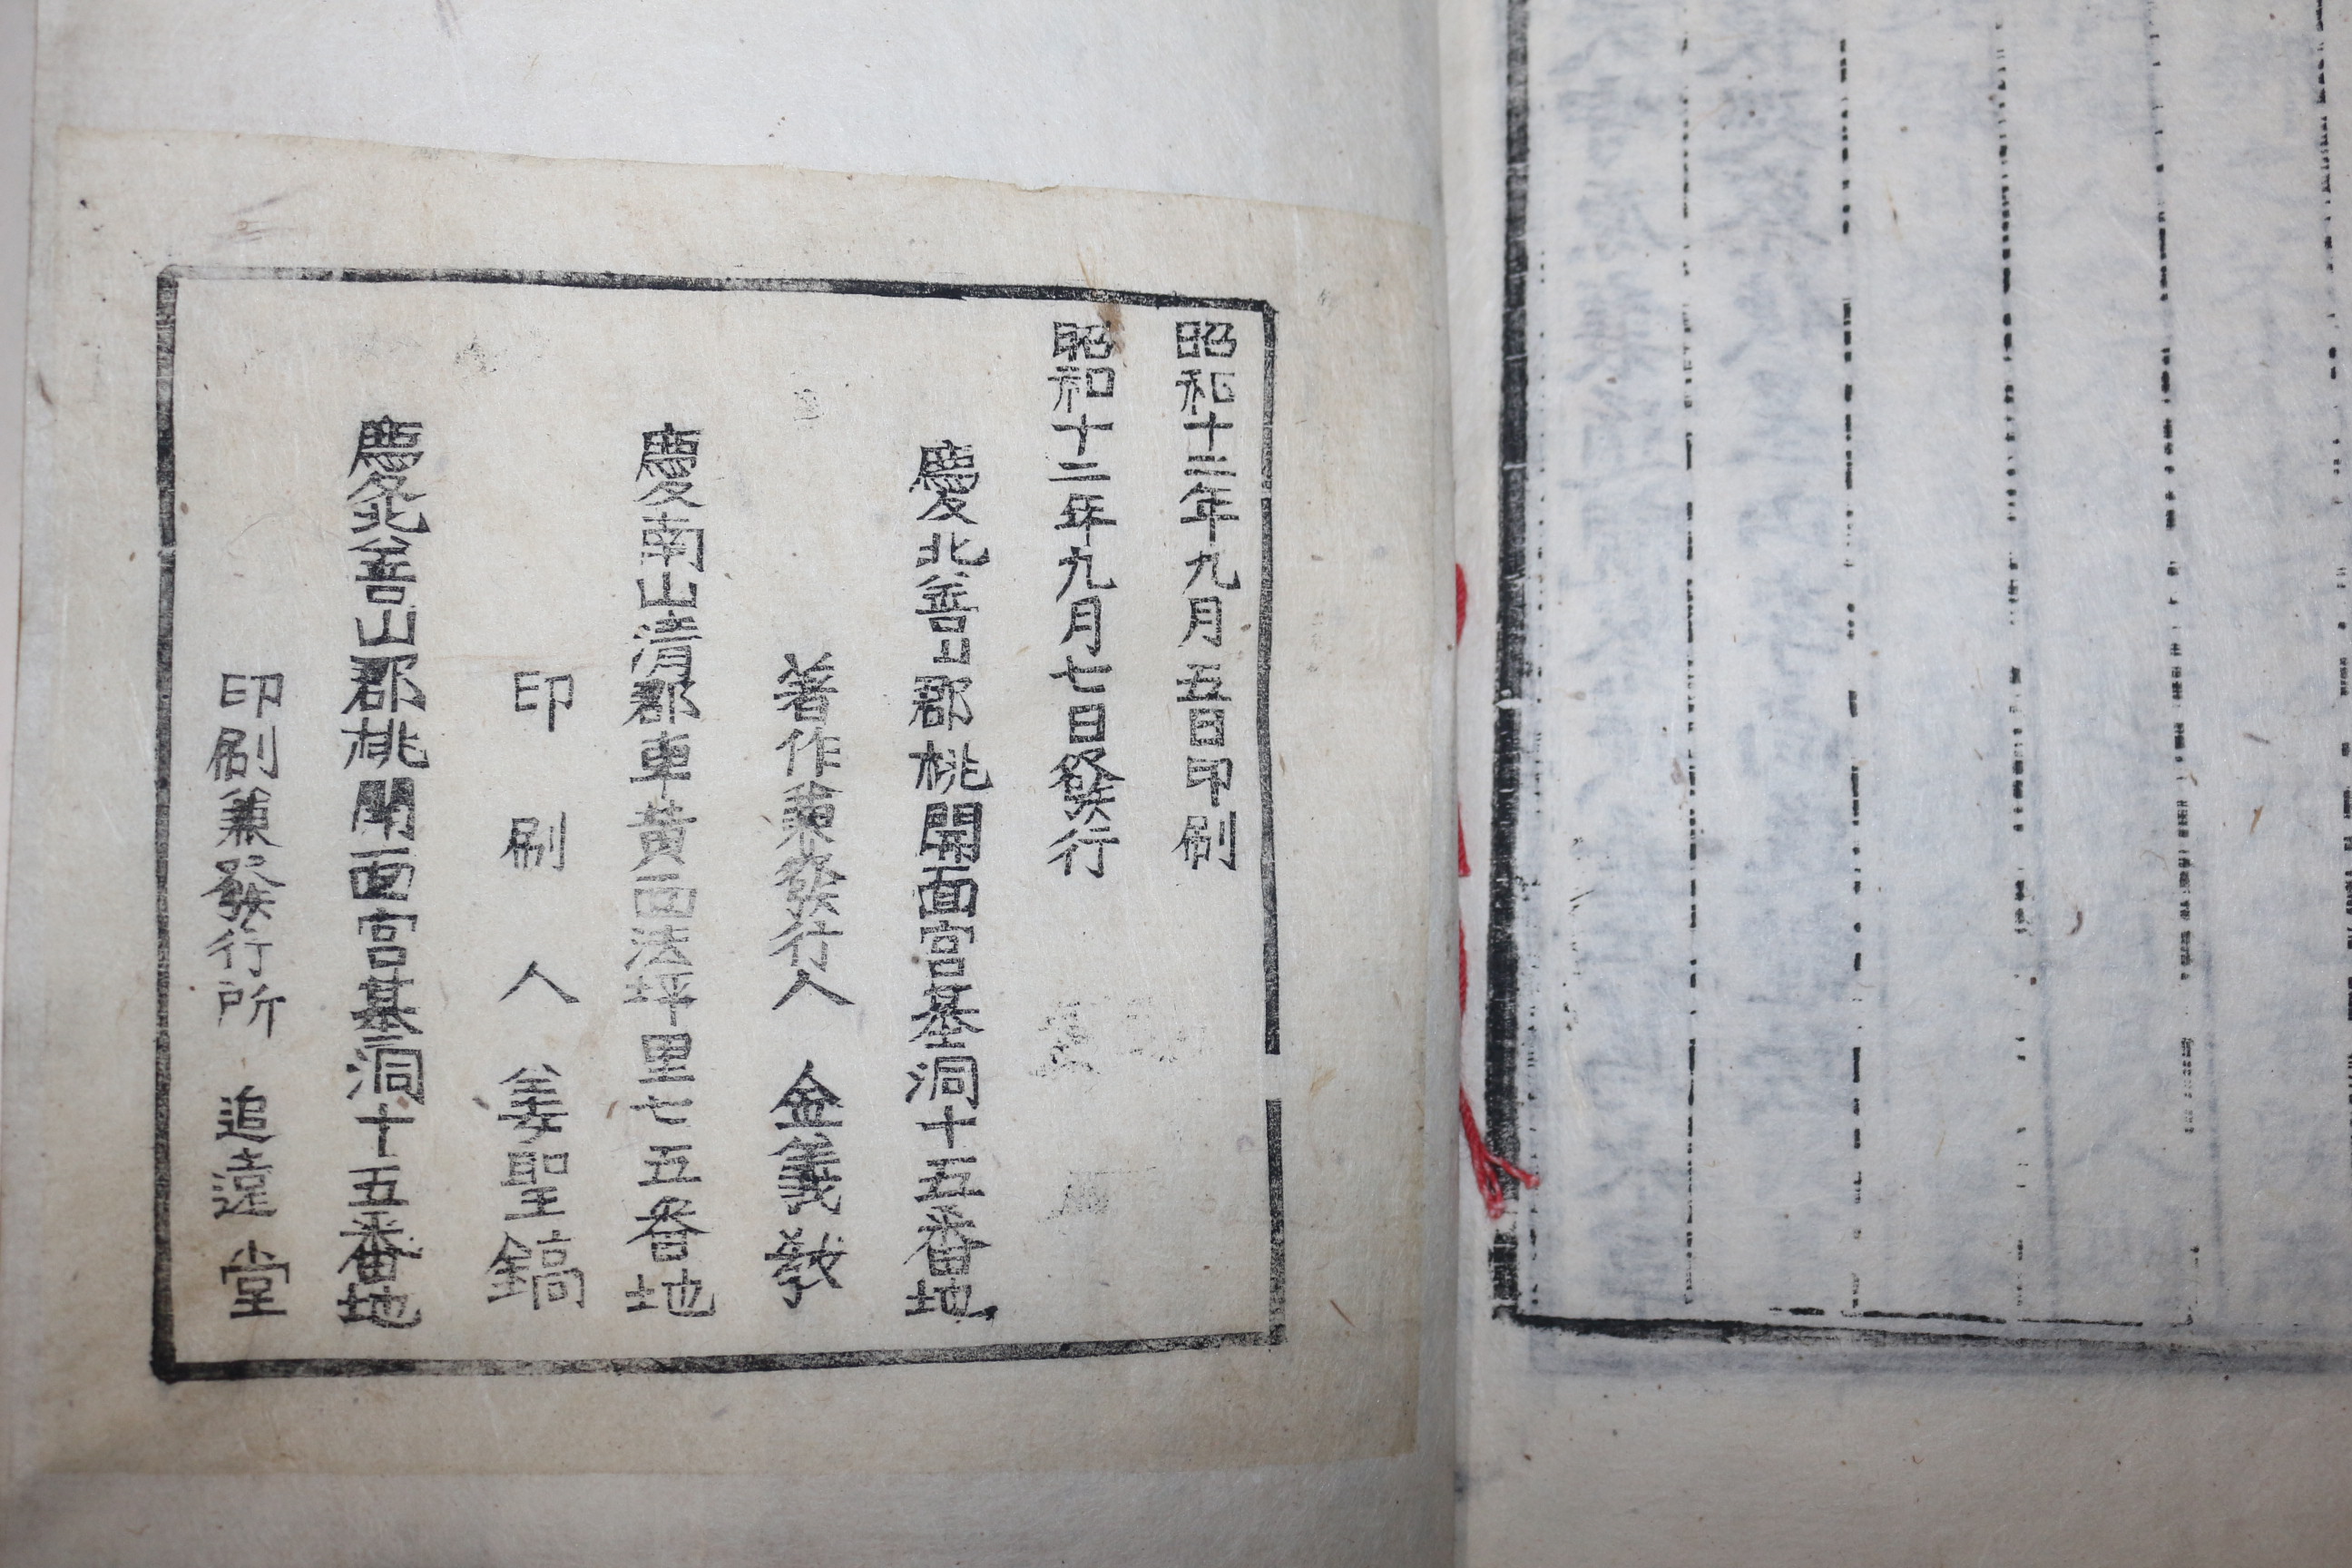 昭和十二年九月五日印刷
昭和十二年九月七日發行
慶北善山郡桃開面宮基洞十五番地
著作兼發行人 金義敎
慶南山淸郡車黃面法坪里七五番地
印刷人 姜聖鎬
慶北善山郡桃開面宮基洞十五番地
印刷兼發行所 追遠堂